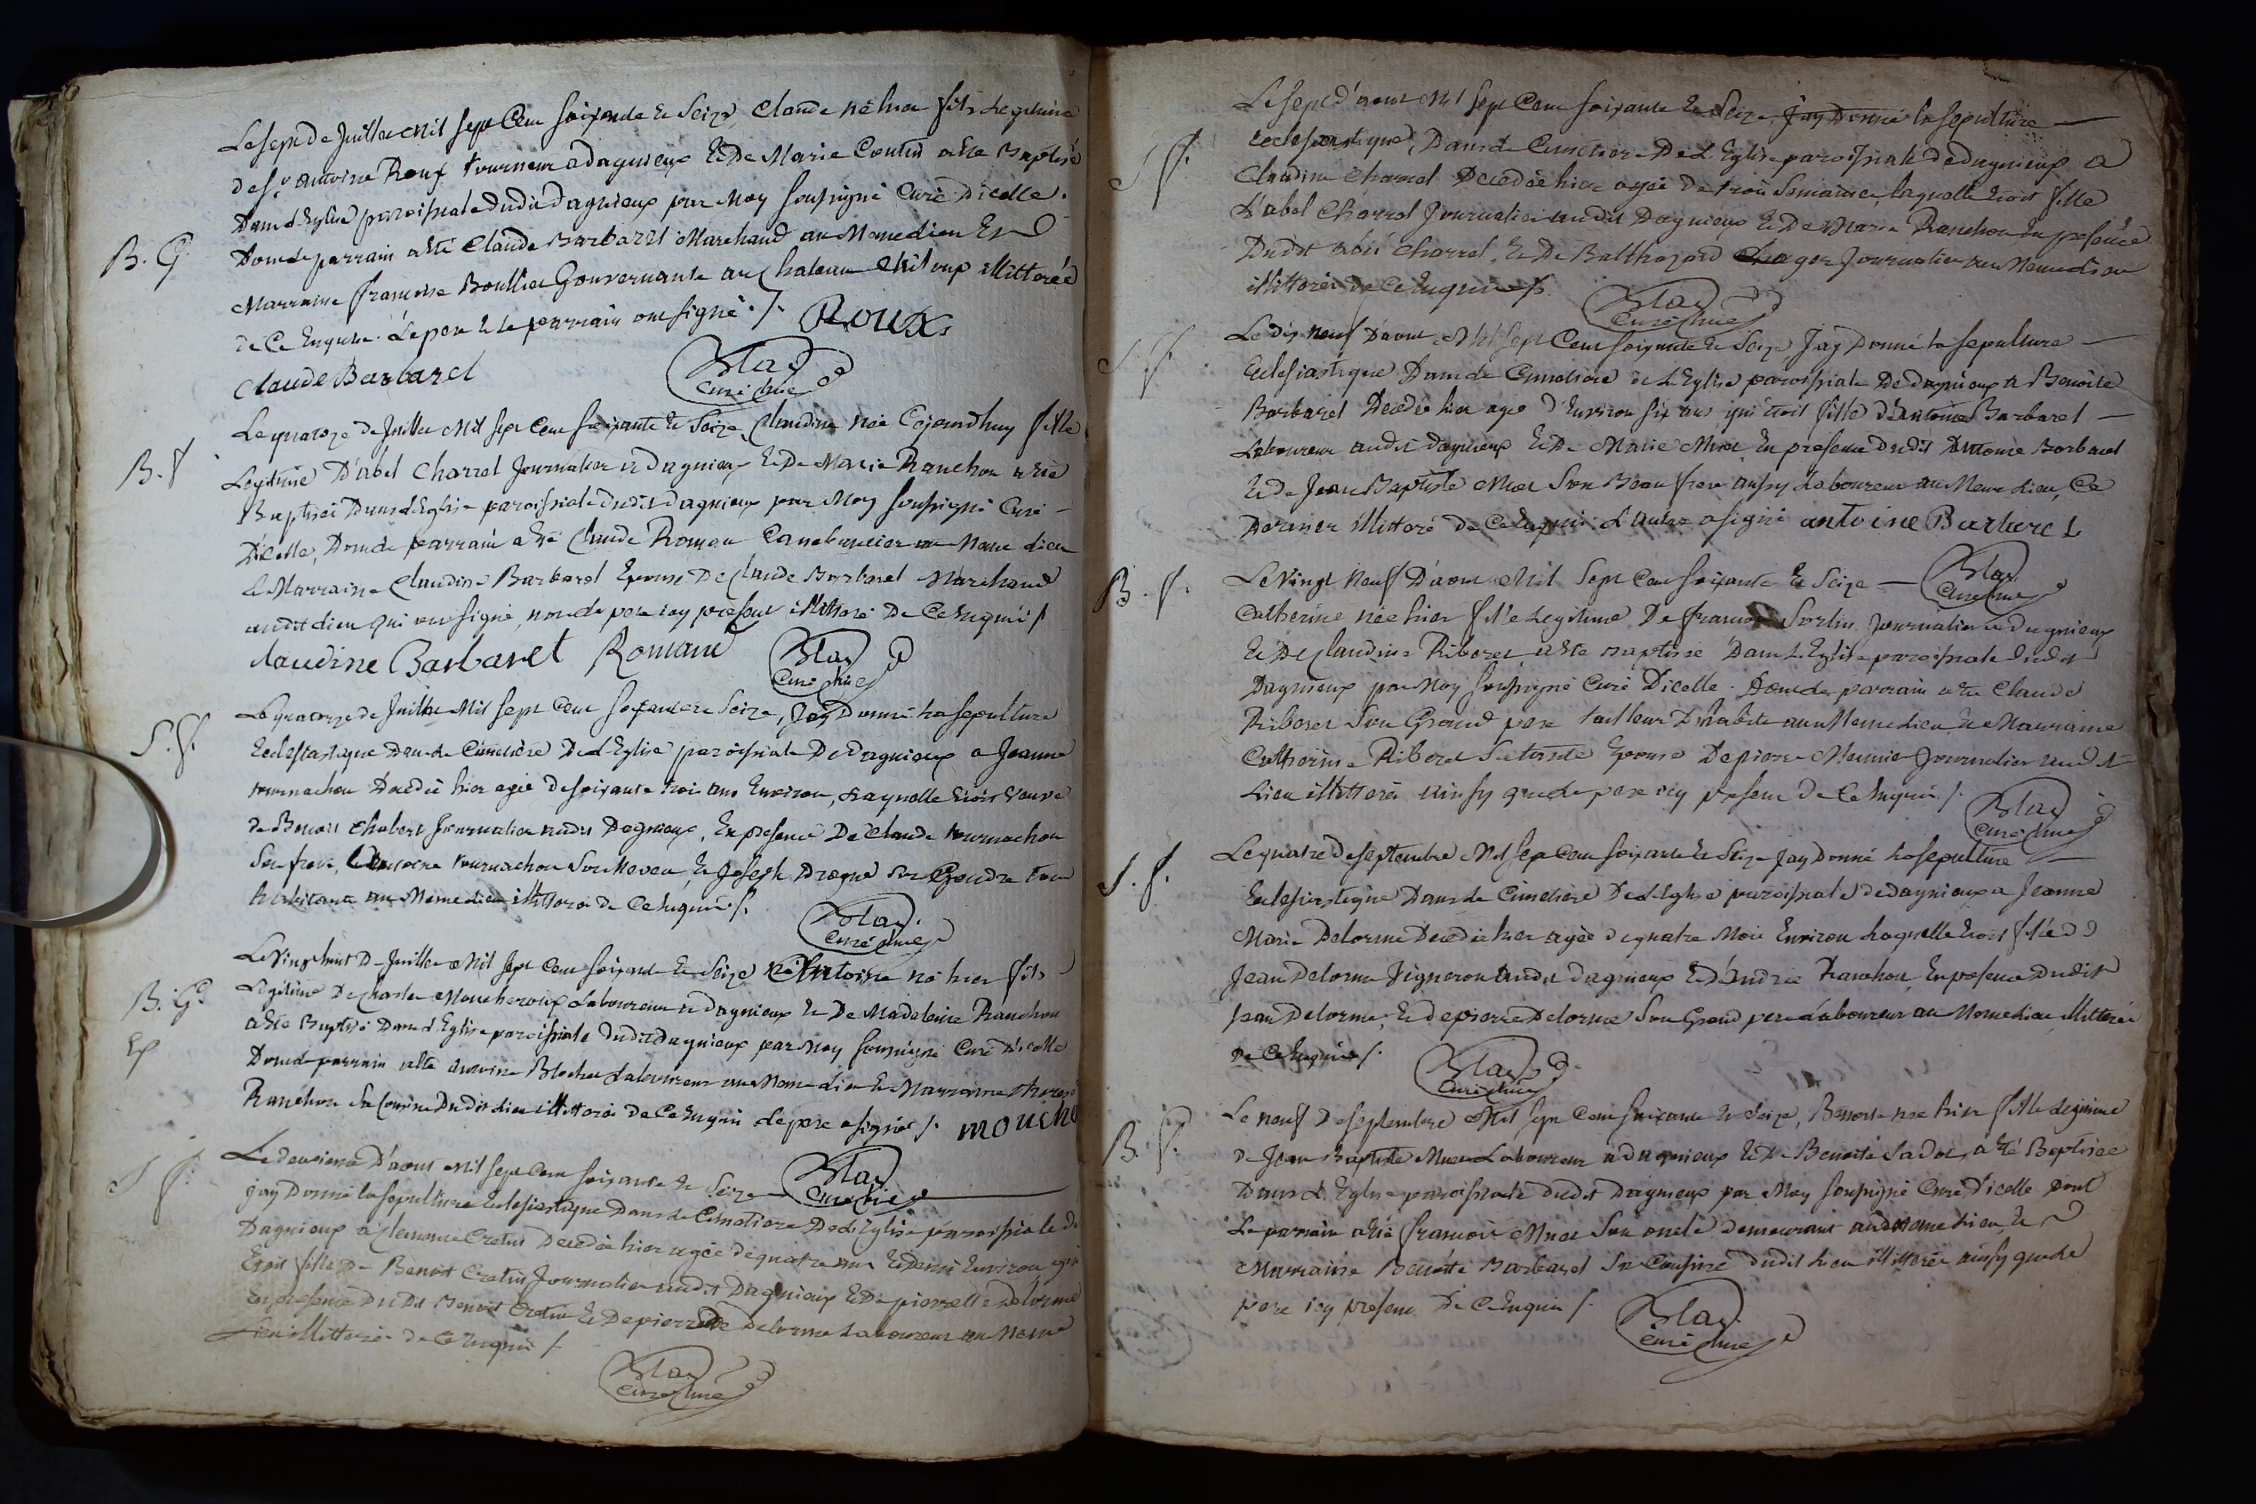 Le sept de Juillet Mil sept Cent soixante et Seize, Claude né hier fils Legitime
de sr antoine Roux tourneur a dagnieux Et De Marie Coutin a été Baptisé
Dans L'Eglise paroissiale dudit dagnieux par Moy soussigné Curé D'icelle.
B. G. Dont le parrain a été Claude Barbaret Marchand au Meme lieu Et
Marraine francoise Boullier Gouvernante au Chateau illitorée
de Ce Enquise. Le pere et le parrain ont signé ./. Roux
Claude Barbarel
Blad Curé
Le quatorze de Juillet Mil sept Cent soixante et Seize, Claudine née Cejourdhuy fille
B. f. Legitime D'abel Charrel Journalier a dagnieux Et De Marie Ranchon a été
Baptisée Dans L'Eglise paroissiale dudit dagnieux par Moy soussigné Curé
D'icelle, Dont le parrain a été Claude Roman Cannebassier au Meme lieu
Et Marraine Claudine Barbarel Epouse De Claude Barbarel Marchand
audit lieu qui ont signé, non le pere icy present illitoré De Ce Enquis /
Claudine Barbaret Romand
Blad Curé
Le quatorze de Juillet Mil sept Cent soixante et Seize, J'ay Donné la sepulture
S. f. Eclesiastique Dans le Cimetiere De L'Eglise paroissiale De dagnieux a Jeanne
tournachon Decedée hier agée de soixante trois ans Environ, Laquelle Etoit Veuve
de Benoit Chabert Journalier audit Dagnieux, En presence De Claude tournachon
Son frere, tournachon Son Neveu, Et Joseph Son Gendre tous
habitants au Meme lieu illitorés de Ce Enquis ./.
Blad Curé
Le Vingt huit De Juillet Mil sept Cent soixante Et Seize Antoine né hier fils
B. G. Legitime De Charles Moucheroux Laboureur a Dagnieux Et De Madeleine Ranchon
a été Baptisé Dans L'Eglise paroissiale dudit Dagnieux par Moy soussigné Curé D'icelle
Dont le parrain a été antoine Blochet Laboureur au Meme lieu Et Marraine
Ranchon Sa Cousine Dudit lieu illitorés de Ce Enquis Le pere a signé ./. mouche
Blad Curé
Le deuxieme D'aout Mil Sept Cent Soixante Et Seize
S f. J'ay Donné la sepulture Eclesiastique Dans le Cimetiere De L'Eglise paroissiale de
Dagnieux a Clemence Cretin Decedée hier agée de quatre ans Et Demi Environ qui
Etoit fille De Benoit Cretin Journalier audit Dagnieux Et De pierrette Delorme
En presence Dudit Benoit Cretin Et De pierre Delorme Laboureur au Meme
Lieu illitorés de Ce Enquis /.
Blad Curé
Le sept D'aout Mil Sept Cent soixante Et Seize J'ay Donné la sepulture
S f. Eclesiastique, Dans le Cimetiere De L'Eglise paroissiale de dagnieux a
Claudine Charrel Decedée hier agée De trois Semaines laquelle Etoit fille
D'abel Charrel Journalier audit Dagnieux Et De Marie Ranchon En presence
Dudit abel Charrel, Et De Balthazard Journalier au Meme lieu
illitorés de Ce Enquis /.
Blad Curé
S. f. Le dix neuf D'aout Mil Sept Cent soixante Et Seize, J'ay Donné la sepulture
Eclesiastique Dans le Cimetiere de L'Eglise paroissiale De dagnieux a Benoite
Barbarel Decedée hier agée d'Environ six ans qui étoit fille d'antoine Barbarel
Laboureur audit Dagnieux Et De Marie Muet En presence Dudit Antoine Barbarel
Et de Jean Baptiste Muet Son Beau frere aussy Laboureur au Meme Lieu, Ce
Dernier illittoré de Ce Enquis L'Autre a signé antoine Barbarel
Blad Curé
B. f. Le Vingt Neuf D'aout Mil Sept Cent Soixante Et Seize
Catherine née hier fille Legitime De francois Sorlin Journalier a dagnieux
Et De Claudine Riboret, a été Baptisée Dans L'Eglise paroissiale dudit
Dagnieux par Moy soussigné Curé D'icelle. Dont le parrain a été Claude
Riboret Son Grand pere tailleur D'habits au Meme lieu Et Marraine
Catherine Riboret Sa tante Epouse De pierre Meunier Journalier audit
Lieu illittorés ainsy que le pere icy present de Ce Enquis /.
Blad Curé
S. f. Le quatre De Septembre Mil Sept Cent soixante Et Seize J'ay Donné la sepulture
Eclesiastique Dans le Cimetiere De L'Eglise paroissiale de dagnieux a Jeanne
Marie Delorme Decedée hier agée de quatre Mois Environ Laquelle Etoit fille De
Jean Delorme Vigneron audit Dagnieux Et D'Andrée Ranchon, En presence Dudit
Jean Delorme, Et de pierre Delorme Son Grand pere Laboureur au Meme lieu illittorés
De Ce Enquis /.
Blad Curé
B. f. Le neuf De Septembre Mil Sept Cent Soixante Et Seize, Benoite née hier fille Legitime
De Jean Baptiste Muet Laboureur a Dagnieux Et De Benoite Sadot, a été Baptisée
Dans L'Eglise paroissiale dudit Dagnieux par Moy soussigné Curé D'icelle Dont
Le parrain a été francois Muet Son oncle demeurant au Meme Lieu, Et
Marraine Benoite Barbarel Sa Cousine dudit Lieu illitorés ainsy que le
pere icy present De Ce Enquis /.
Blad Curé